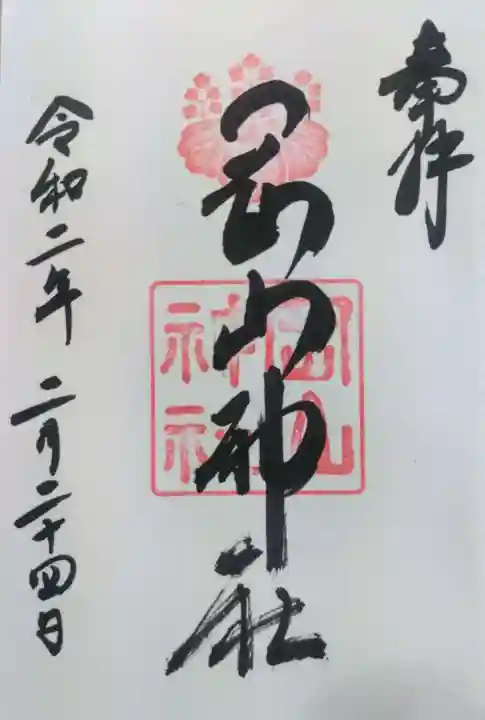 奉拝
岡山神社
岡山
神社
令和二年 二月二十四日